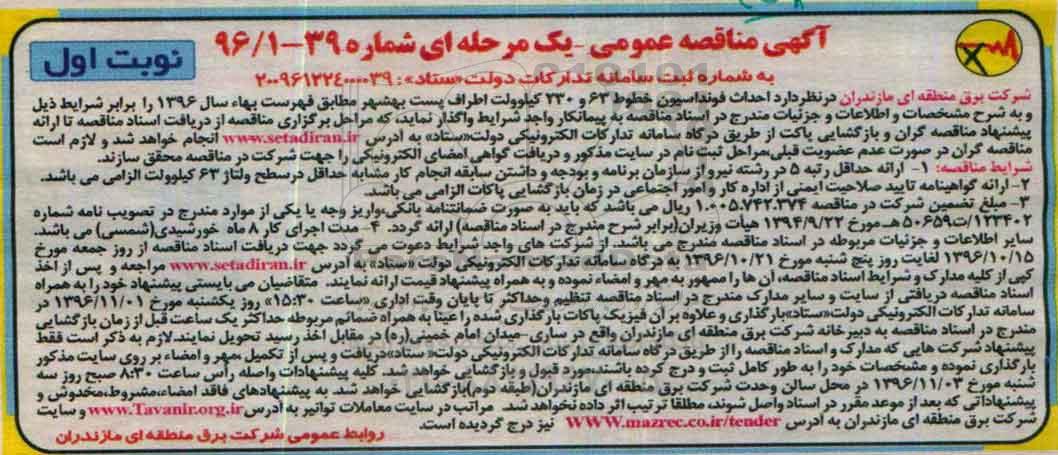 آگهی مناقصه عمومی - یک مرحله ای شماره ۳۹-۹۶/۱
نوبت اول
به شماره ثبت سامانه تدارکات دولت«ستاد»: ۲۰۰۹۶۱۲۲۴۰۰۰۰۳۹
شرکت برق منطقه ای مازندران درنظر دارد احداث فونداسیون خطوط ۶۳ و ۲۳۰ کیلوولت اطراف پست بهشهر مطابق فهرست بهاء سال ۱۳۹۶ را برابر شرایط ذیل
و به شرح مشخصات و اطلاعات و جزئیات مندرج در اسناد مناقصه به پیمانکار واجد شرایط واگذار نماید، که مراحل برگزاری مناقصه از دریافت اسناد مناقصه تا ارائه
پیشنهاد مناقصه گران و بازگشایی پاکت از طریق درگاه سامانه تدارکات الکترونیکی دولت«ستاد» به آدرس www.setadiran.ir انجام خواهد شد و لازم است
مناقصه گران در صورت عدم عضویت قبلی،مراحل ثبت نام در سایت مذکور و دریافت گواهی امضای الکترونیکی را جهت شرکت در مناقصه محقق سازند.
شرایط مناقصه: ۱- ارائه حداقل رتبه ۵ در رشته نیرو از سازمان برنامه و بودجه و داشتن سابقه انجام کار مشابه حداقل درسطح ولتاژ ۶۳ کیلوولت الزامی می باشد.
۲- ارائه گواهینامه تایید صلاحیت ایمنی از اداره کار و امور اجتماعی در زمان بازگشایی پاکات الزامی می باشد.
۳- مبلغ تضمین شرکت در مناقصه ۱.۰۰۵.۷۴۲.۳۷۴ ریال می باشد که باید به صورت ضمانتنامه بانکی،واریز وجه یا یکی از موارد مندرج در تصویب نامه شماره
۱۲۳۴۰۲/ت۵۰۶۵۹ هـ مورخ ۱۳۹۴/۹/۲۲ هیأت وزیران(برابر شرح مندرج در اسناد مناقصه) ارائه گردد. ۴- مدت اجرای کار ۸ ماه خورشیدی(شمسی) می باشد.
سایر اطلاعات و جزئیات مربوطه در اسناد مناقصه مندرج می باشد. از شرکت های واجد شرایط دعوت می گردد جهت دریافت اسناد مناقصه از روز جمعه مورخ
۱۳۹۶/۱۰/۱۵ لغایت روز پنج شنبه مورخ ۱۳۹۶/۱۰/۲۱ به درگاه سامانه تدارکات الکترونیکی دولت «ستاد» به آدرس www.setadiran.ir مراجعه و پس از اخذ
کپی از کلیه مدارک و شرایط اسناد مناقصه، آن ها را ممهور به مهر و امضاء نموده و به همراه پیشنهاد قیمت ارائه نمایند. متقاضیان می بایستی پیشنهاد خود را به همراه
اسناد مناقصه دریافتی از سایت و سایر مدارک مندرج در اسناد مناقصه تنظیم وحداکثر تا پایان وقت اداری «ساعت ۱۵:۳۰» روز یکشنبه مورخ ۱۳۹۶/۱۱/۰۱ در
سامانه تدارکات الکترونیکی دولت«ستاد»بارگذاری و علاوه بر آن فیزیک پاکات بارگذاری شده را عینا به همراه ضمائم مربوطه حداکثر یک ساعت قبل از زمان بازگشایی
مندرج در اسناد مناقصه به دبیرخانه شرکت برق منطقه ای مازندران واقع در ساری-میدان امام خمینی(ره) در مقابل اخذ رسید تحویل نمایند.لازم به ذکر است فقط
پیشنهاد شرکت هایی که مدارک و اسناد مناقصه را از طریق درگاه سامانه تدارکات الکترونیکی دولت« ستاد»دریافت و پس از تکمیل،مهر و امضاء بر روی سایت مذکور
بارگذاری نموده و مشخصات خود را به طور کامل ثبت و درج کرده باشند،مورد قبول و بازگشایی خواهد شد. کلیه پیشنهادات واصله رأس ساعت ۸:۳۰ صبح روز سه
شنبه مورخ ۱۳۹۶/۱۱/۰۳ در محل سالن وحدت شرکت برق منطقه ای مازندران(طبقه دوم)بازگشایی خواهد شد. به پیشنهادهای فاقد امضاء،مشروط،مخدوش و
پیشنهاداتی که بعد از موعد مقرر در اسناد واصل شوند، مطلقا ترتیب اثر داده نخواهد شد. مراتب در سایت معاملات توانیر به آدرس www.Tavanir.org.ir و سایت
شرکت برق منطقه ای مازندران به آدرس WWW.mazrec.co.ir/tender نیز درج گردیده است.
روابط عمومی شرکت برق منطقه ای مازندران